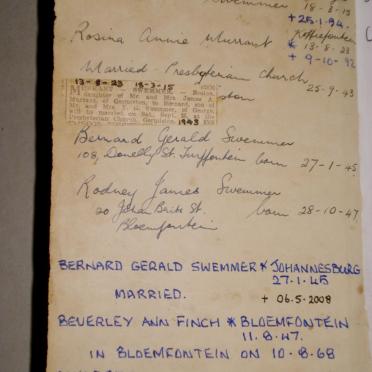 Swemmer 18-3-15
+ 25-1-94.
Koffiefontein
Rosina Annie Murrant * 13-8-23
+ 9-10-92
Married Presbyterian Church
25-9-43
13-8-23 18-3-15
MURRANT SWEMMER — Rosina,
daughter of Mr. and Mrs. James
Murrant, of Germiston, to Bernard, son of
Mr. and Mrs.
will be married on Sat., Sept. 25, at the
Presbyterian Church, Germiston. 1943
Bernard Gerald Swemmer
108, Donelly St. Turffontein born 27-1-45
Rodney James Swemmer
20 Johan Brits St. born 28-10-47
Bloemfontein
BERNARD GERALD SWEMMER * JOHANNESBURG
27.1.45
MARRIED. + 06.5.2008
BEVERLEY ANN FINCH * BLOEMFONTEIN
11.8.47.
IN BLOEMFONTEIN ON 10-8-68